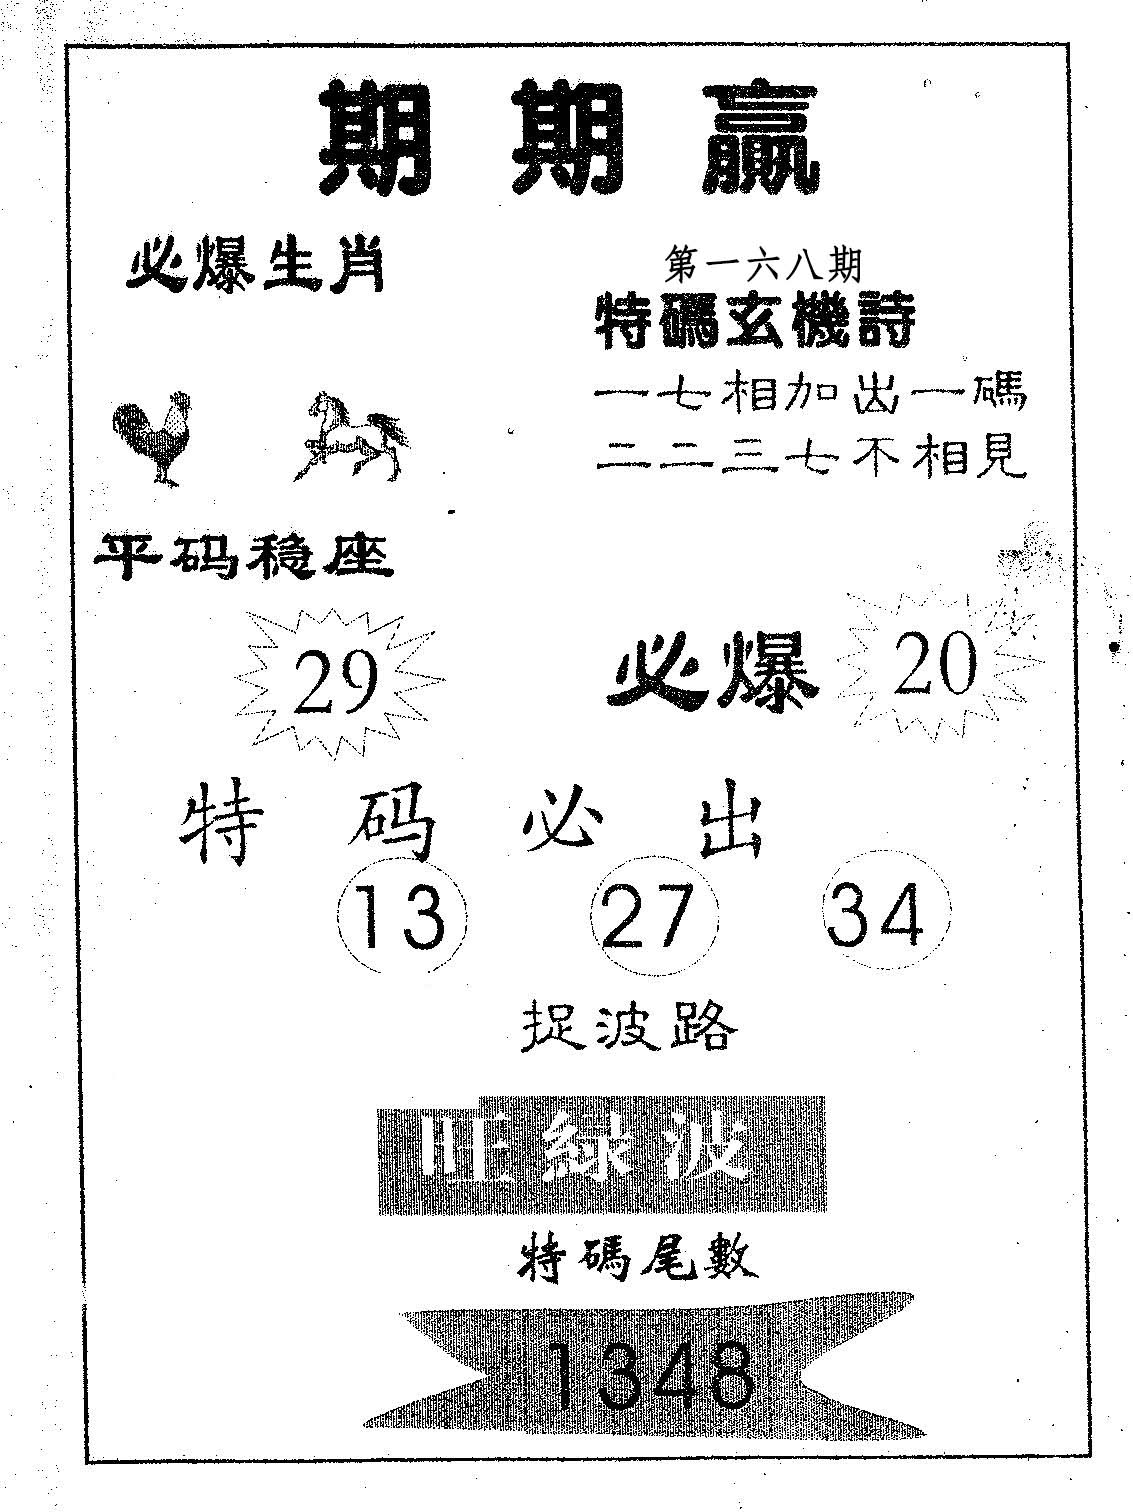 期期赢
必爆生肖
第一六八期
特碼玄機詩
一七相加出一碼
二二三七不相見
平码稳座
29
必爆 20
特码必出
13 27 34
捉波路
旺綠波
特碼尾數
1348